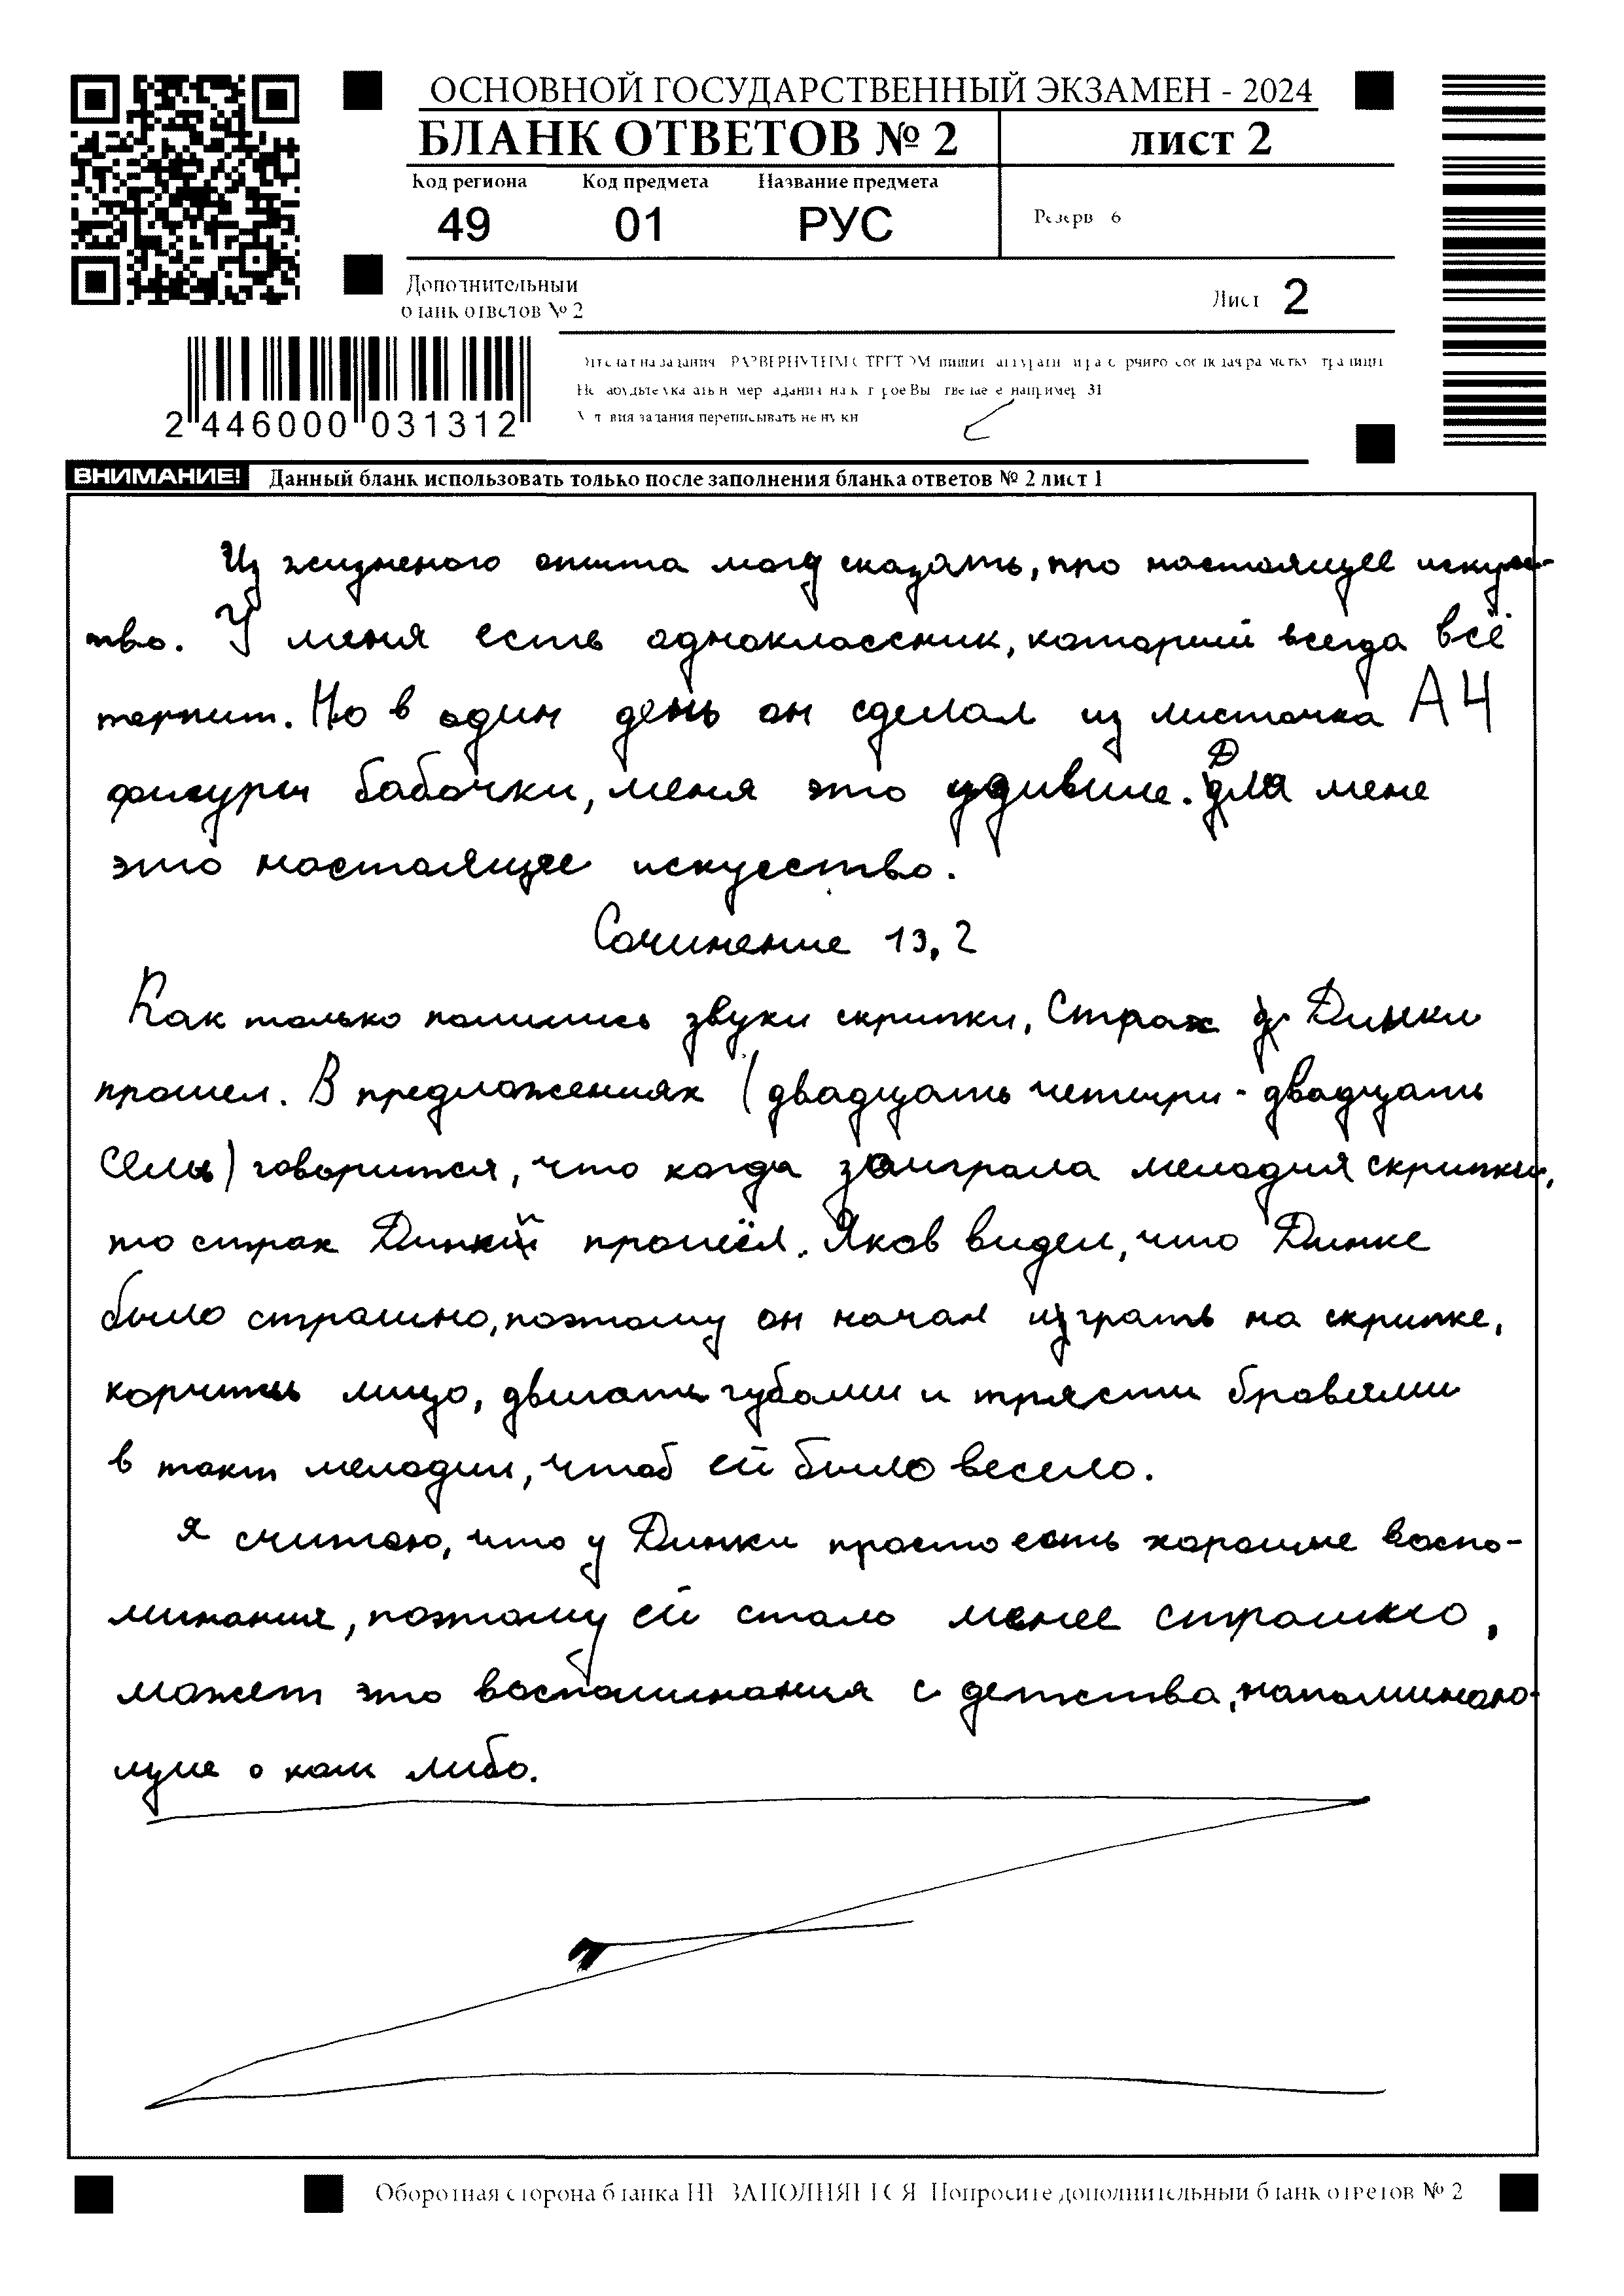 ОСНОВНОЙ ГОСУДАРСТВЕННЫЙ ЭКЗАМЕН - 2024
БЛАНК ОТВЕТОВ № 2 лист 2
Код региона Код предмета Название предмета
49 01 РУС Резерв 6
Дополнительный
бланк ответов № 2
Лист 2
Условия задания переписывать не нужно
2 446000 031312
ВНИМАНИЕ! Данный бланк использовать только после заполнения бланка ответов № 2 лист 1
Из жизненого опыта могу сказать, про настоящее искус-
тво. У меня есть одноклассник, который всегда всё
терпит. Но в один день он сделал из листочка А4
фигуры бабочки, меня это удивило. Для мене
это настоящее искусство.
Сочинение 13,2
Как только полились звуки скрипки, Страх у Динки
прошел. В предложениях (двадцать четыри - двадцать
семь) говорится, что когда заиграла мелодия скрипки,
то страх Динки прошёл. Яков видел, что Динке
было страшно, поэтому он начал играть на скрипке,
корчить лицо, двигать губами и трясти бровями
в такт мелодии, чтоб ей было весело.
Я считаю, что у Динки просто есть хорошие воспо-
минания, поэтому ей стало менее страшно,
может это воспоминания с детства, напоминаю-
щие о ком либо.
Оборотная сторона бланка НЕ ЗАПОЛНЯЕТСЯ Попросите дополнительный бланк ответов № 2